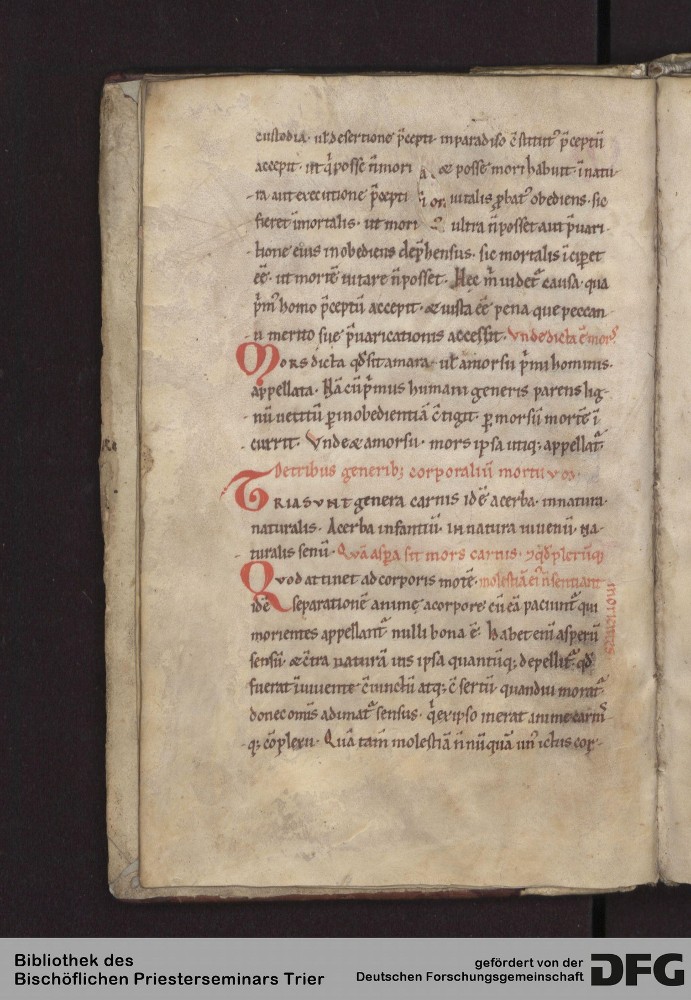 custodia · ul̄ desertione p̄cepti · in paradiso c̄stitut᷒ p̄ceptū
accepit · ut & posse n̄ mori & posse mori habuit · īnatu-
ra aut executione p̄cepti uitalis ꝓbat᷒ obediens · sic
fieret īmortalis · ut mori ultra n̄ posset aut p̄uari-
tione eius inobediens dep̄hensus · sic mortalis īciperet
ēē · ut mortē uitare n̄ posset · Hec m̄ uidet᷑ causa · qua
p̄m᷒ homo p̄ceptū accepit · & iusta ēē pena que peccan-
ti merito sue p̄uaricationis accessit · Vnde dicta ē mors
Mors dicta qđ sit amara · ul̄ a morsu p̄mi hominis ·
appellata · Nā cū p̄mus humani generis parens lig-
nū uetitū ꝑ inobedientiā c̄tigit · ꝑ morsū mortē ī-
currit · Vnde & a morsu · mors ipsa utiq; appellat᷑
De tribus generib; corporaliū mortuum
TRIA SVNT genera carnis idē acerba · innatura ·
naturalis · Acerba infantiū · innatura iuuenū · Na-
turalis senū · Quā aspera sit mors carnis · & qđ plerūq;
Quod attinet ad corporis motē · molestiā ei᷒ n̄ sentiant
morientes
idē separationē anime a corpore cū eā paciunt᷑ qui
morientes appellant᷑ nulli bona ē · Habet enī asperū
sensū · & c̄tra naturā uis ipsa quantūq; depellit᷑ qđ
fuerat ī uiuente c̄iunctū atq; c̄sertū · quandiu morat᷑
donec omīs adimat᷑ sensus · q̄ ex ipso inerat anime carnis-
q; cōplexu · Quā tam̄ molestiā n̄nūquā un᷒ ictus cor-
Bibliothek des
Bischöflichen Priesterseminars Trier
gefördert von der
Deutschen Forschungsgemeinschaft
DFG